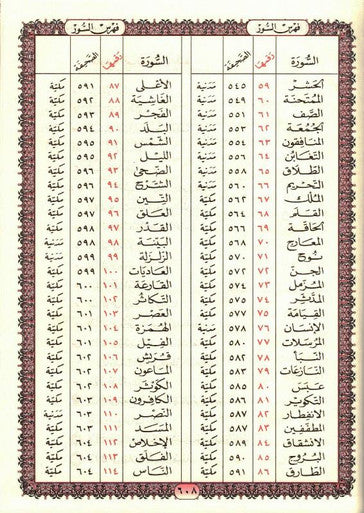 فهرس السور فهرس السور
السورة رقمها الصحيفة السورة رقمها الصحيفة
الحشر ٥٩ ٥٤٥ مدنية الأعلى ٨٧ ٥٩١ مكية
الممتحنة ٦٠ ٥٤٩ مدنية الغاشية ٨٨ ٥٩٢ مكية
الصف ٦١ ٥٥١ مدنية الفجر ٨٩ ٥٩٣ مكية
الجمعة ٦٢ ٥٥٣ مدنية البلد ٩٠ ٥٩٤ مكية
المنافقون ٦٣ ٥٥٤ مدنية الشمس ٩١ ٥٩٥ مكية
التغابن ٦٤ ٥٥٦ مدنية الليل ٩٢ ٥٩٥ مكية
الطلاق ٦٥ ٥٥٨ مدنية الضحى ٩٣ ٥٩٦ مكية
التحريم ٦٦ ٥٦٠ مدنية الشرح ٩٤ ٥٩٦ مكية
الملك ٦٧ ٥٦٢ مكية التين ٩٥ ٥٩٧ مكية
القلم ٦٨ ٥٦٤ مكية العلق ٩٦ ٥٩٧ مكية
الحاقة ٦٩ ٥٦٦ مكية القدر ٩٧ ٥٩٨ مكية
المعارج ٧٠ ٥٦٨ مكية البينة ٩٨ ٥٩٨ مدنية
نوح ٧١ ٥٧٠ مكية الزلزلة ٩٩ ٥٩٩ مدنية
الجن ٧٢ ٥٧٢ مكية العاديات ١٠٠ ٥٩٩ مكية
المزمل ٧٣ ٥٧٤ مكية القارعة ١٠١ ٦٠٠ مكية
المدثر ٧٤ ٥٧٥ مكية التكاثر ١٠٢ ٦٠٠ مكية
القيامة ٧٥ ٥٧٧ مكية العصر ١٠٣ ٦٠١ مكية
الإنسان ٧٦ ٥٧٨ مدنية الهمزة ١٠٤ ٦٠١ مكية
المرسلات ٧٧ ٥٨٠ مكية الفيل ١٠٥ ٦٠١ مكية
النبأ ٧٨ ٥٨٢ مكية قريش ١٠٦ ٦٠٢ مكية
النازعات ٧٩ ٥٨٣ مكية الماعون ١٠٧ ٦٠٢ مكية
عبس ٨٠ ٥٨٥ مكية الكوثر ١٠٨ ٦٠٢ مكية
التكوير ٨١ ٥٨٦ مكية الكافرون ١٠٩ ٦٠٣ مكية
الانفطار ٨٢ ٥٨٧ مكية النصر ١١٠ ٦٠٣ مدنية
المطففين ٨٣ ٥٨٧ مكية المسد ١١١ ٦٠٣ مكية
الانشقاق ٨٤ ٥٨٩ مكية الإخلاص ١١٢ ٦٠٤ مكية
البروج ٨٥ ٥٩٠ مكية الفلق ١١٣ ٦٠٤ مكية
الطارق ٨٦ ٥٩١ مكية الناس ١١٤ ٦٠٤ مكية
٦٠٨